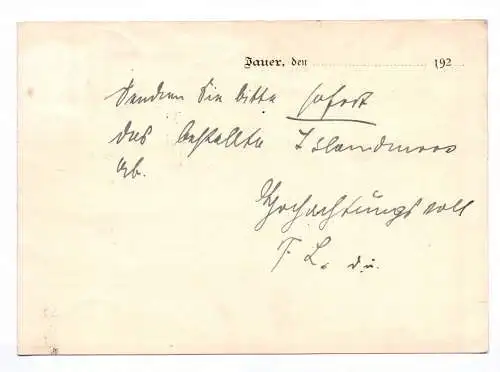 Jauer, den 192
Senden Sie bitte sofort
das bestellte Islandmoos
ab.
Hochachtungsvoll
F. L.